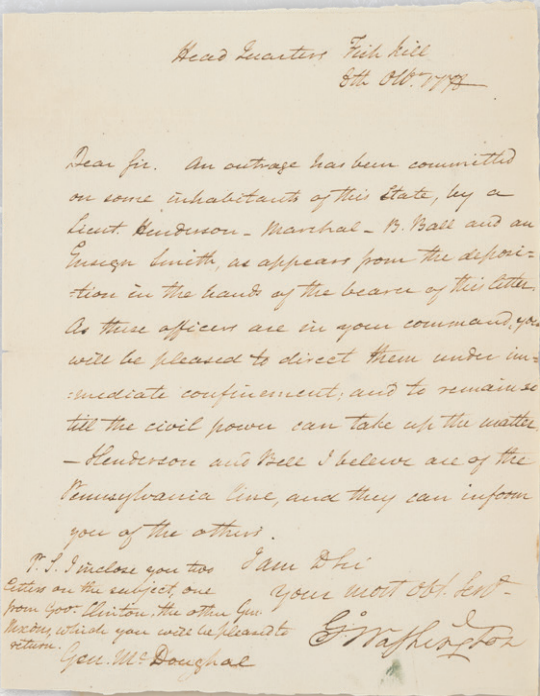 Head Quarters Fish kill
8th Obr. 1778
Dear Sir. An outrage has been committed
on some inhabitants of this State, by a
Lieut. Henderson - Marshal - B. Ball and an
Ensign Smith, as appears from the deposi=
=tion in the hands of the bearer of this letter.
As these officers are in your command, you
will be pleased to direct them under im=
=mediate confinement; and to remain so
till the civil power can take up the matter.
- Henderson and Bell I beleive are of the
Pennsylvania line, and they can inform
you of the others.
I am D Sir
Your most Obt. Servt.
Go. Washington
P. S. I inclose you two
letters on the subject, one
from Govr. Clinton, the other Gen.
Nixons, which you will be pleased to
return.
Gen. Mc Doughal